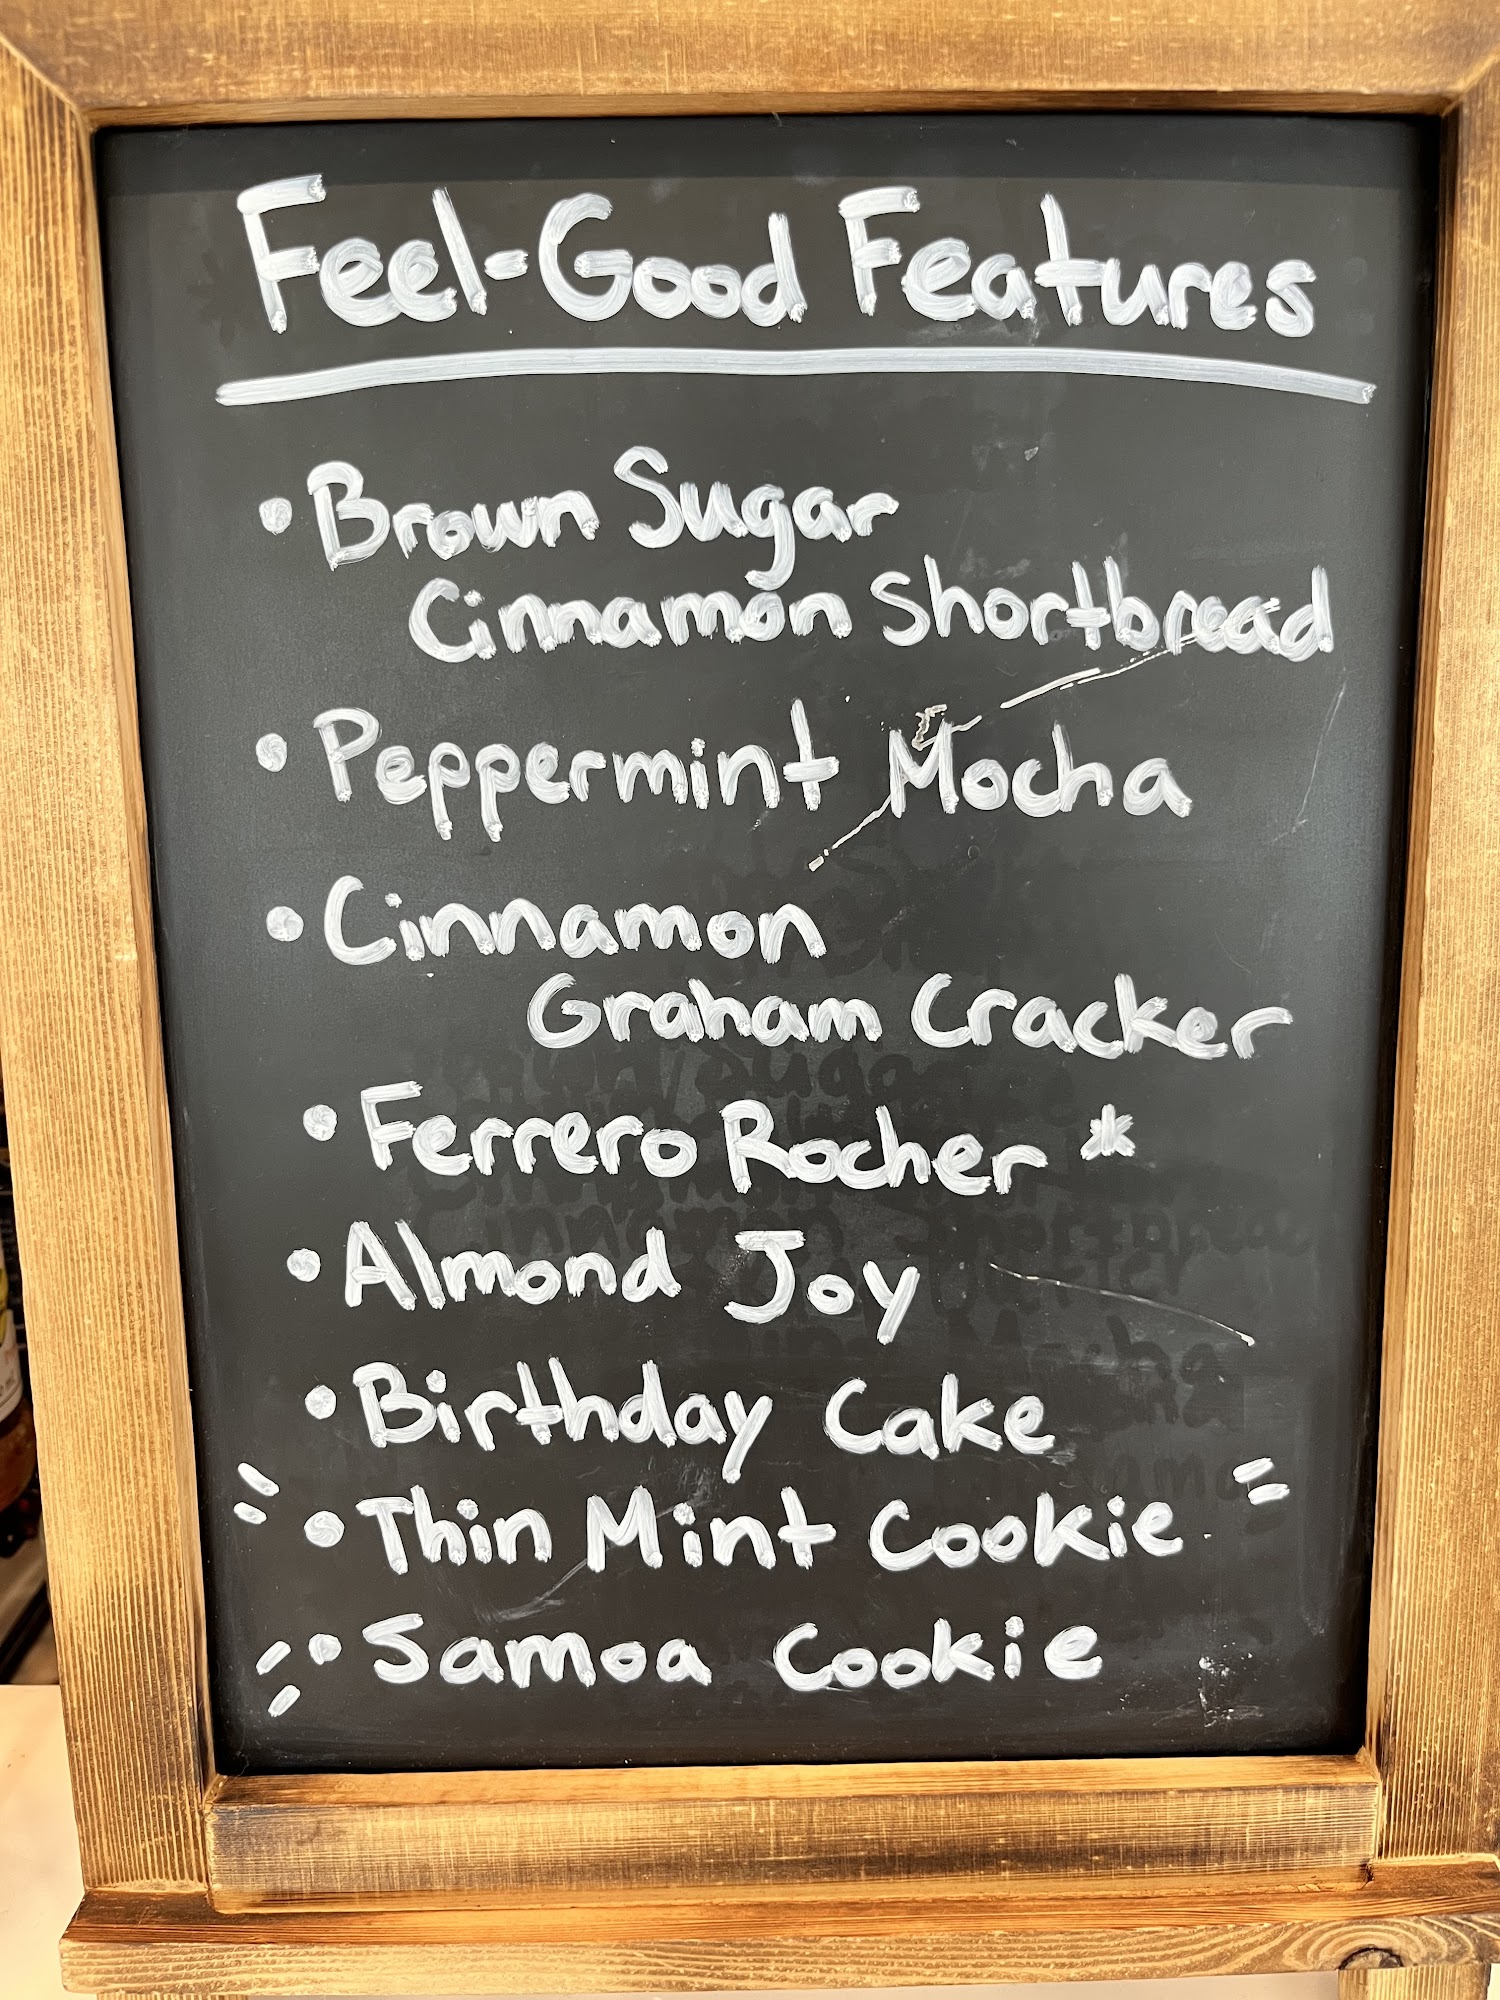 Feel-Good Features
• Brown Sugar
Cinnamon Shortbread
• Peppermint Mocha
• Cinnamon
Graham Cracker
• Ferrero Rocher *
• Almond Joy
• Birthday Cake
• Thin Mint Cookie
• Samoa Cookie